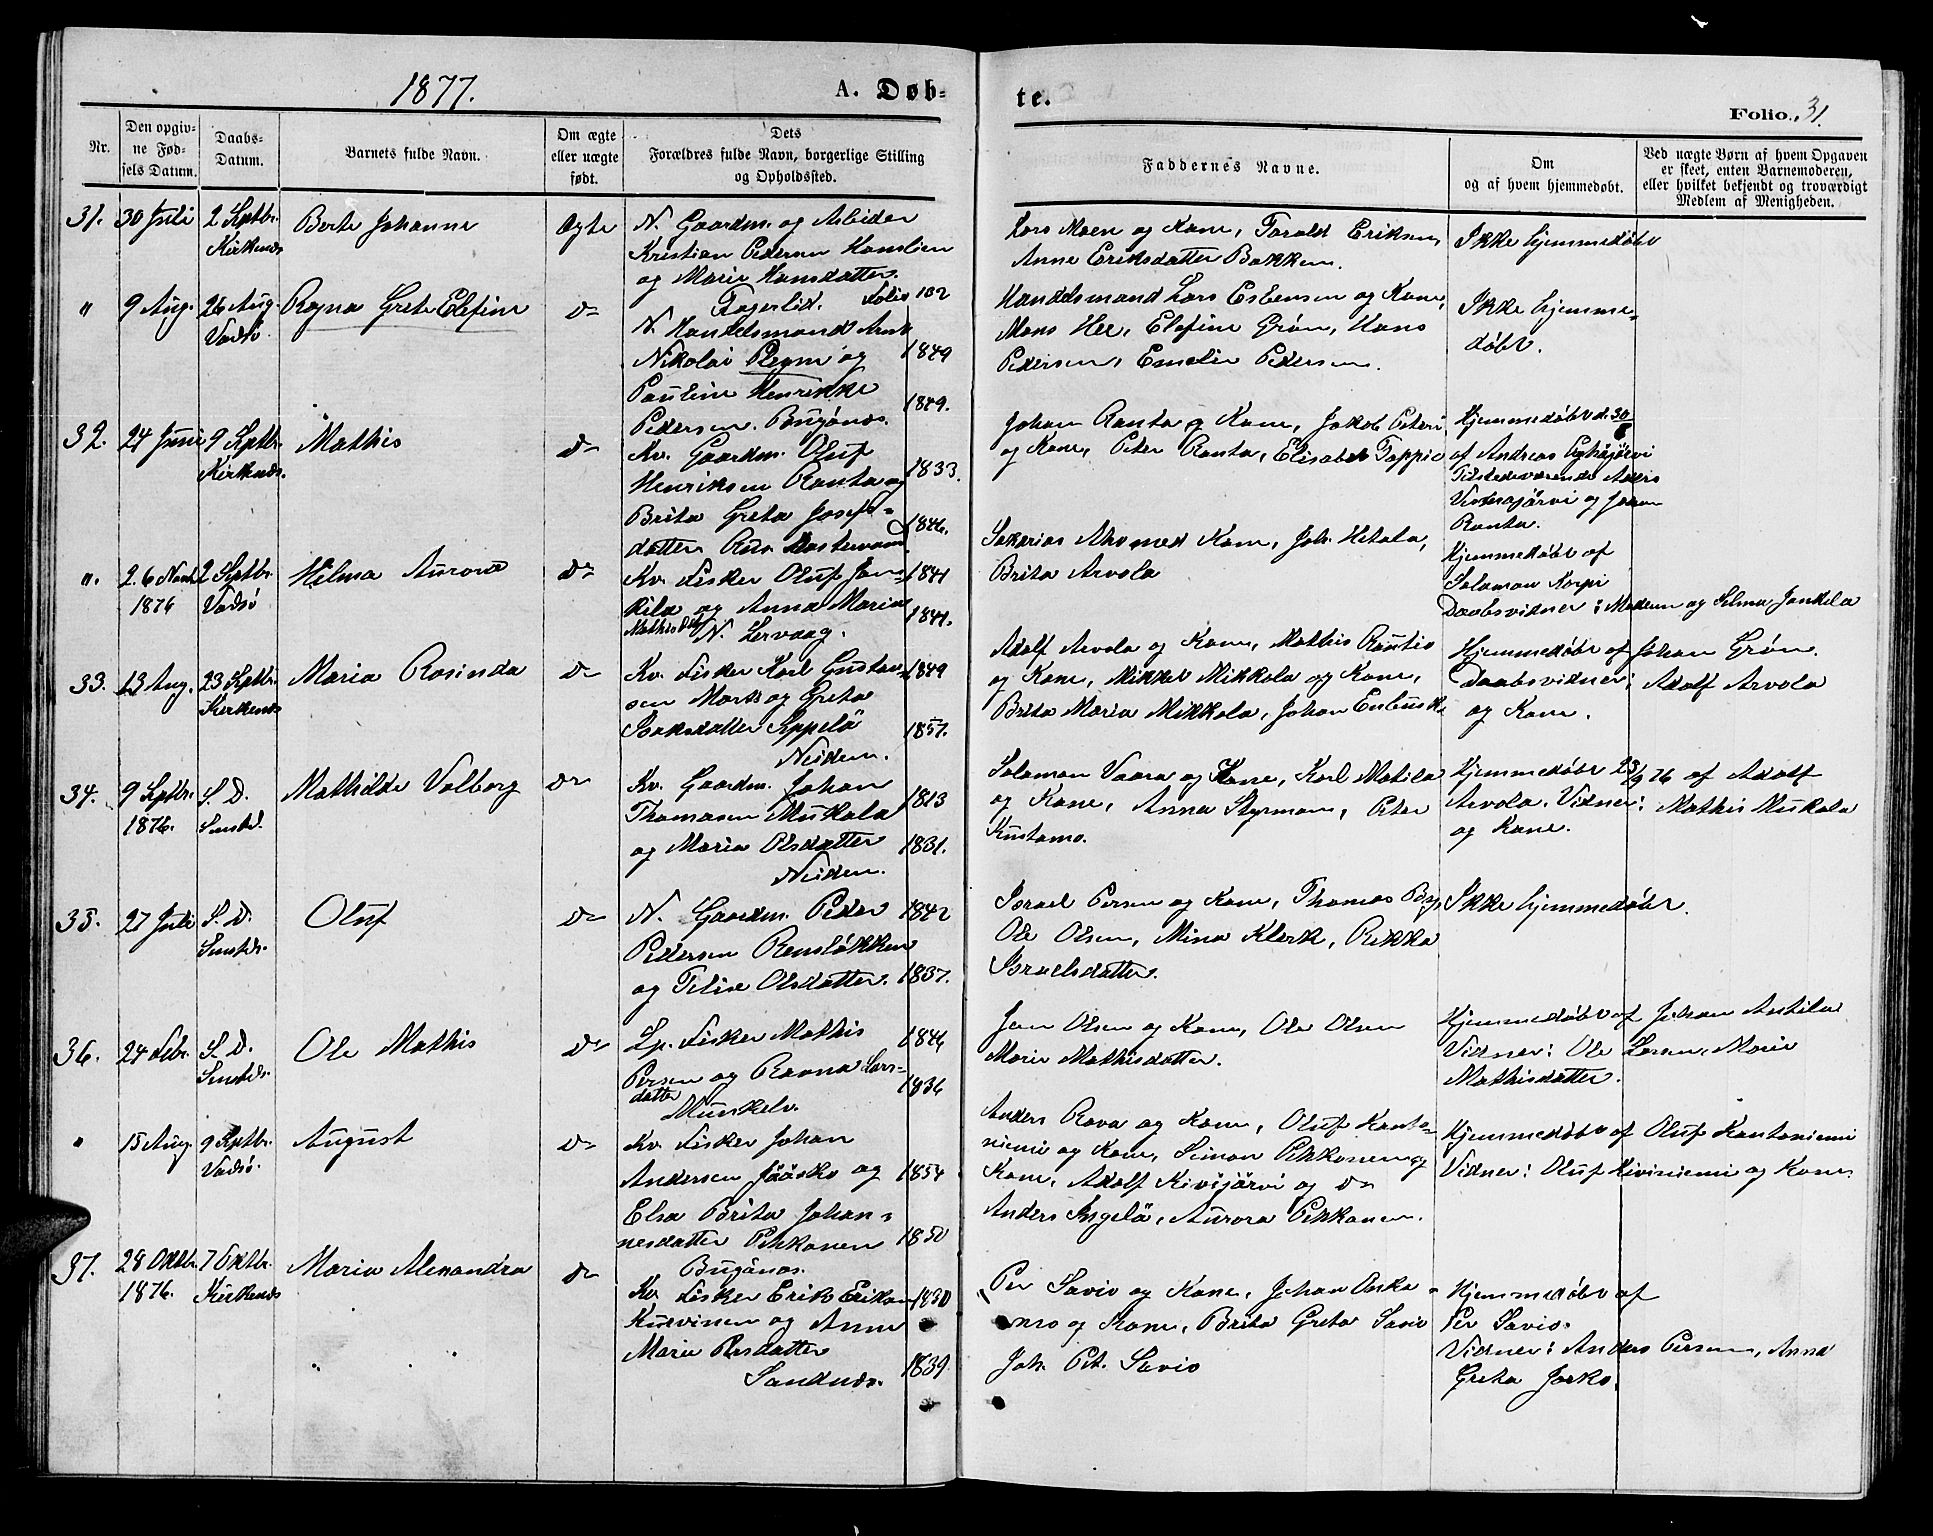 1877.
A. Døb-
te.
Folio 31.
Nr.
Den opgiv-
ne Fød-
sels Datum.
Daabs-
Datum.
Barnets fulde Navn.
Om ægte
eller uægte
født.
Dets
Forældres fulde Navn, borgerlige Stilling
og Opholdssted.
Faddernes Navne.
Om
og af hvem hjemmedøbt.
Ved uægte Børn af hvem Opgaven
er skeet, enten Barnemoderen,
eller hvilket bekjendt og troværdigt
Medlem af Menigheden.
31. 30 Juli
2 Septbr.
Kirkenæs
Berte Johanne
Ægte
N. Gaardm. og Arbeider
Kristian Pedersen
og Marie Hansdatter.
Fagerlid. Folio 102
Lars Moen og Kone, Torald Eriksen,
Anne Eriksdatter Bakken.
Ikke hjemmedøbt
" 9 Aug.
26 Aug.
Vadsø.
Ragna Grete Elefine
do
N. Handelsmand Arnt
Nikolai Pleym og 1849
Pauline Henrikke
Pedersen. Bugønæs. 1849.
Handelsmand Lars Esbensen og Kone,
Mons Hee, Elefine Grøn, Hans
Pedersen, Emelie Pedersen.
Ikke hjemme-
døbt.
32. 24 Juni
9 Septbr.
Kirkenæs.
Mathis
do
Kv. Gaardm. Oluf
Henriksen Ranta og 1833.
Brita Greta Josef-
datter 1846.
Johan Ranta og Kone, Jakob Peteri
og Kone, Peter Ranta, Elisabet Toppie
Hjemmedøbt d. 30/6
af Andreas
Tilstedeværende Anders
og Johan
Ranta.
". 26 Novb.
1876
2 Septbr.
Vadsø
Hilma Aurora
do
Kv. Fisker Oluf Jan- 1841
kila og Anna Maria
Mathisdtr N. Lervaag. 1841.
Sakarias Aho med Kone, Joh. Hetala,
Brita Arvola
Hjemmedøbt af
Salamon Korpi
Daabsvidner: Moderen og Selma Jankila
33. 13 Aug.
23 Septbr.
Kirkenæs
Maria Rosinda
do
Kv. Fisker Karl Gustav- 1849
sen Mark og Greta
Isaksdatter Seppelä 1857.
Neiden.
Adolf Arvola og Kone, Mathis Rautio
og Kone, Mikkel Mikkola og Kone,
Brita Maria Mikkola, Johan Enbusk.
Hjemmedøbt af Johan Grøn.
Daabsvidner: Adolf Arvola
og Kone.
34. 9 Septbr.
1876.
S. D.
Smsteds.
Mathilde Valborg
do
Kv. Gaardm. Johan
Thomasen Mukala 1813
og Maria Olsdatter 1831.
Neiden.
Salamon Vaara og Kone, Karl Matila
og Kone, Anna Styrman, Peter
Kustamo.
Hjemmedøbt 23/9 76 af Adolf
Arvola. Vidner: Mathis Mukala
og Kone.
35. 27 Juli
S. D.
Smsteds.
Oluf
do
N. Gaardm. Peder 1842
Pedersen Rensløkken
og Olsdatter. 1837.
Israel Persen og Kone, Thomas
Ole Olsen, Mina Klerk, Rikka
Israelsdatter.
Ikke hjemmedøbt.
36. 24 Febr.
S. D.
Smsteds.
Ole Mathis
do
Lp. Fisker Mathis 1846
Persen og Ravna Lars-
datter 1836
Munkelv.
Jon Olsen og Kone, Ole Olsen
Marie Mathisdatter.
Hjemmedøbt af Johan Antila
Vidner: Ole Larsen, Marie
Mathisdatter.
" 15 Aug.
9 Septbr.
Vadsø.
August
do
Kv. Fisker Johan
Andersen Jääsko og 1854
Elsa Brita Johan-
nesdatter Pekkanen 1850
Bugønæs.
Anders Rova og Kone, Oluf Kanta-
niemi og Kone, Simon Pekkanen og
Kone, Adolf Kivijärvi og do
Anders Ingelä, Aurora Pekkanen.
Hjemmedøbt af Oluf Kantaniemi
Vidner: Oluf Kiviniemi og Kone.
37. 28 Oktbr.
1876.
7 Oktbr.
Kirkenæs
Maria Alexandra
do
Kv. Fisker Erik Eriksen 1830
Kurvinen og Anne
Marie Persdatter 1839.
Sandnæs.
Per Savio og Kone, Johan
og Kone, Brita Greta Savio
Joh. Pet. Savio
Hjemmedøbt af
Per Savio.
Vidner: Anders Persen, Anna
Greta Jorko.